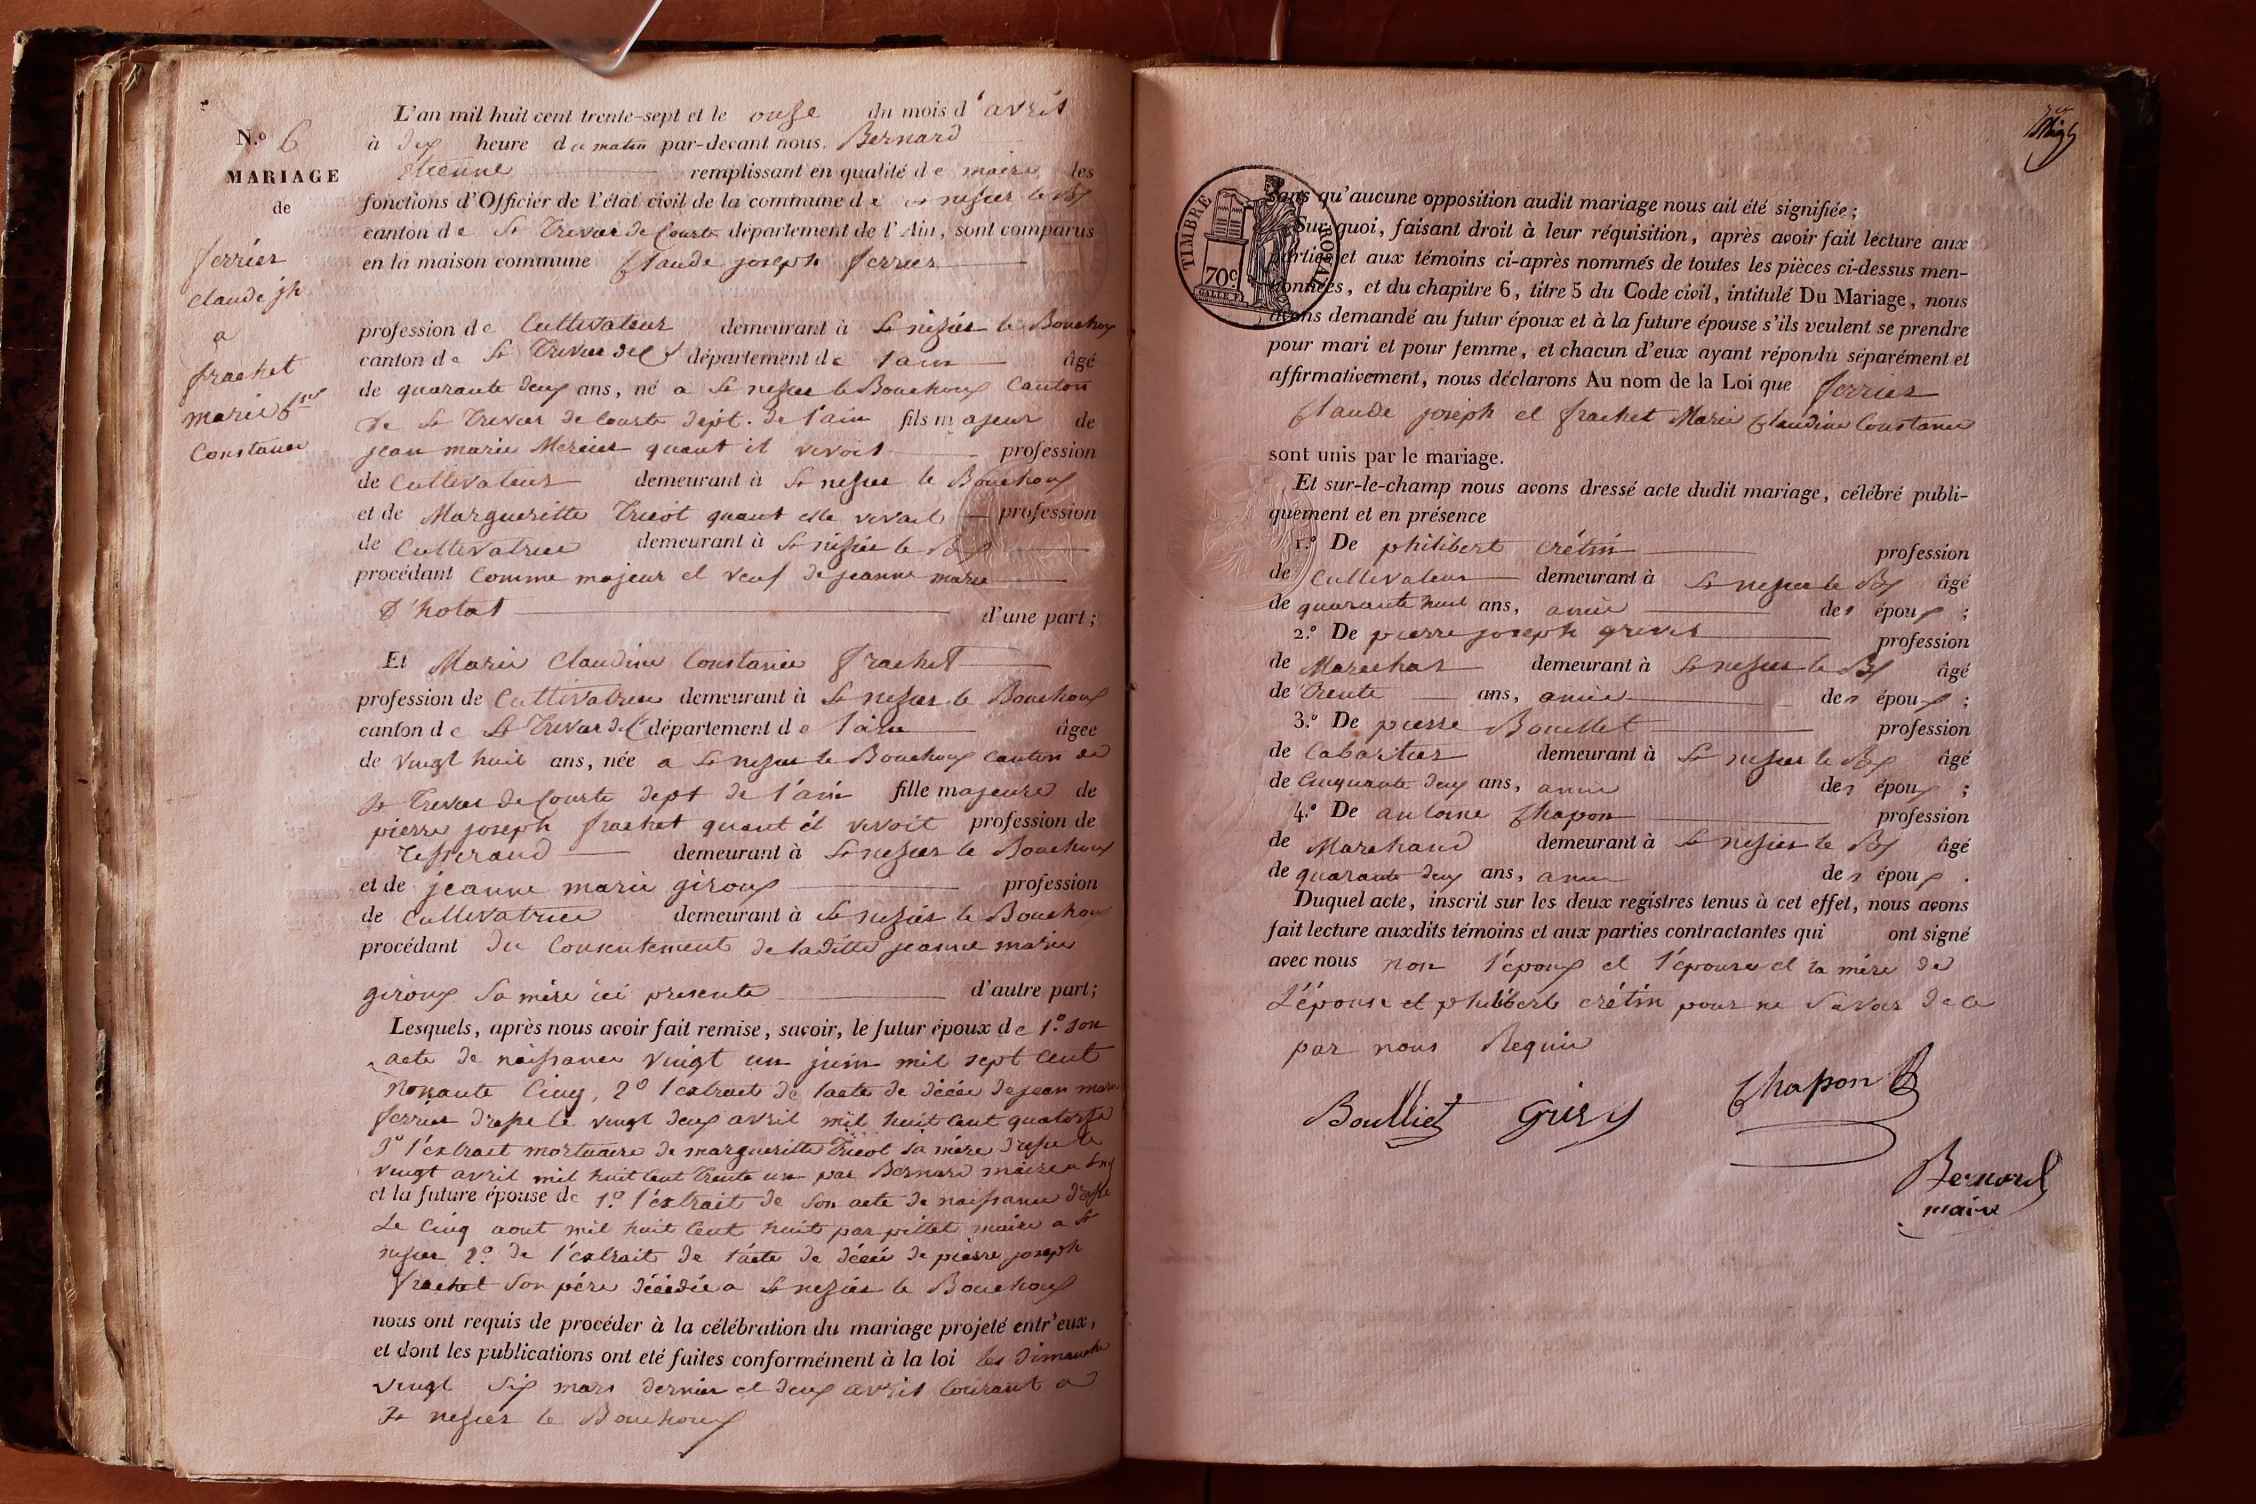 N.º 6
MARIAGE
de
ferrier
claude jh
a
frachet
marie Cne
Constance
L'an mil huit cent trente-sept et le onse du mois d'avril
à dix heure du matin par-devant nous. Bernard
Etienne remplissant en qualité de maire les
fonctions d'Officier de l'état civil de la commune de st nesier le Bx
canton de St Trevier de Courte département de l'Ain, sont comparus
en la maison commune Claude joseph ferrier
profession de Cultivateur demeurant à St nizier le Bouchoux
canton de St Trivier de C département de l'ain âgé
de quarante deux ans, né a St nesier le Bouchoux Canton
de St Trevier de Courte dept. de l'ain fils majeur de
jean marie Mercier quant il vivoit profession
de Cultivateur demeurant à St nesier le Bouchoux
et de Margueritte Tricot quant elle vivait profession
de Cultivatrice demeurant à St nisier le Bx
procédant Comme majeur et veuf de jeanne marie
D'hotat d'une part;
Et Marie Claudine Constance frachet
profession de Cultivatrice demeurant à St nesier le Bouchoux
canton de St Trevier de C département de l'ain âgee
de vingt huit ans, née a St nesier le Bouchoux canton de
St Trevier de Courte dept de l'ain fille majeure de
pierre joseph frachet quant il vivoit profession de
Tesserand demeurant à St nesier le Bouchoux
et de jeanne marie giroux profession
de Cultivatrice demeurant à St nesier le Bouchoux
procédant du Consentement de laditte jeanne marie
giroux sa mère ici presente d'autre part;
Lesquels, après nous avoir fait remise, savoir, le futur époux de 1.º son
acte de naissance vingt un juin mil sept cent
nonante Cinq, 2º l'extrait de l'acte de décée de jean marie
ferrier dressé le vingt deux avril mil huit cent quatorse
3º l'extrait mortuaire de margueritte Tricot sa mère dressé le
vingt avril mil huit cent trente un par Bernard maire a
et la future épouse de 1.º l'éxtrait de son acte de naissance dressé
Le Cinq aout mil huit Cent huit par pillet maire a St
nesier 2.º de l'éxtrait de l'acte de décée de pierre joseph
frachet son père décédée a St nezier le Bouchoux
nous ont requis de procéder à la célébration du mariage projeté entr'eux,
et dont les publications ont été faites conformément à la loi les Dimanche
vingt six mars dernier et deux avril Courant a
St nesier le Bouchoux
TIMBRE ROYAL
70 c.
sans qu'aucune opposition audit mariage nous ait été signifiée;
Sur quoi, faisant droit à leur réquisition, après avoir fait lecture aux
parties et aux témoins ci-après nommés de toutes les pièces ci-dessus men-
tionnées, et du chapitre 6, titre 5 du Code civil, intitulé Du Mariage, nous
avons demandé au futur époux et à la future épouse s'ils veulent se prendre
pour mari et pour femme, et chacun d'eux ayant répondu séparément et
affirmativement, nous déclarons Au nom de la Loi que ferrier
Claude joseph et frachet Marie Claudine Constance
sont unis par le mariage.
Et sur-le-champ nous avons dressé acte dudit mariage, célébré publi-
quement et en présence
1.º De philibert crétin profession
de Cultivateur demeurant à St nesier le Bx âgé
de quarante huit ans, amie des époux;
2.º De pierre joseph grevet profession
de Marechal demeurant à St nesier le Bx âgé
de Trente ans, amie des époux;
3.º De pierre Bouillet profession
de Cabartier demeurant à St nesier le Bx âgé
de Cinquante deux ans, amie des époux;
4.º De antoine Chapon profession
de Marchand demeurant à St nesier le Bx âgé
de quarante deux ans, amie des époux.
Duquel acte, inscrit sur les deux registres tenus à cet effet, nous avons
fait lecture auxdits témoins et aux parties contractantes qui ont signé
avec nous non l'époux et l'épouse et la mère de
L'épouse et philibert crétin pour ne savoir de ce
par nous Requir
Boulliet Chapon
Bernard
maire